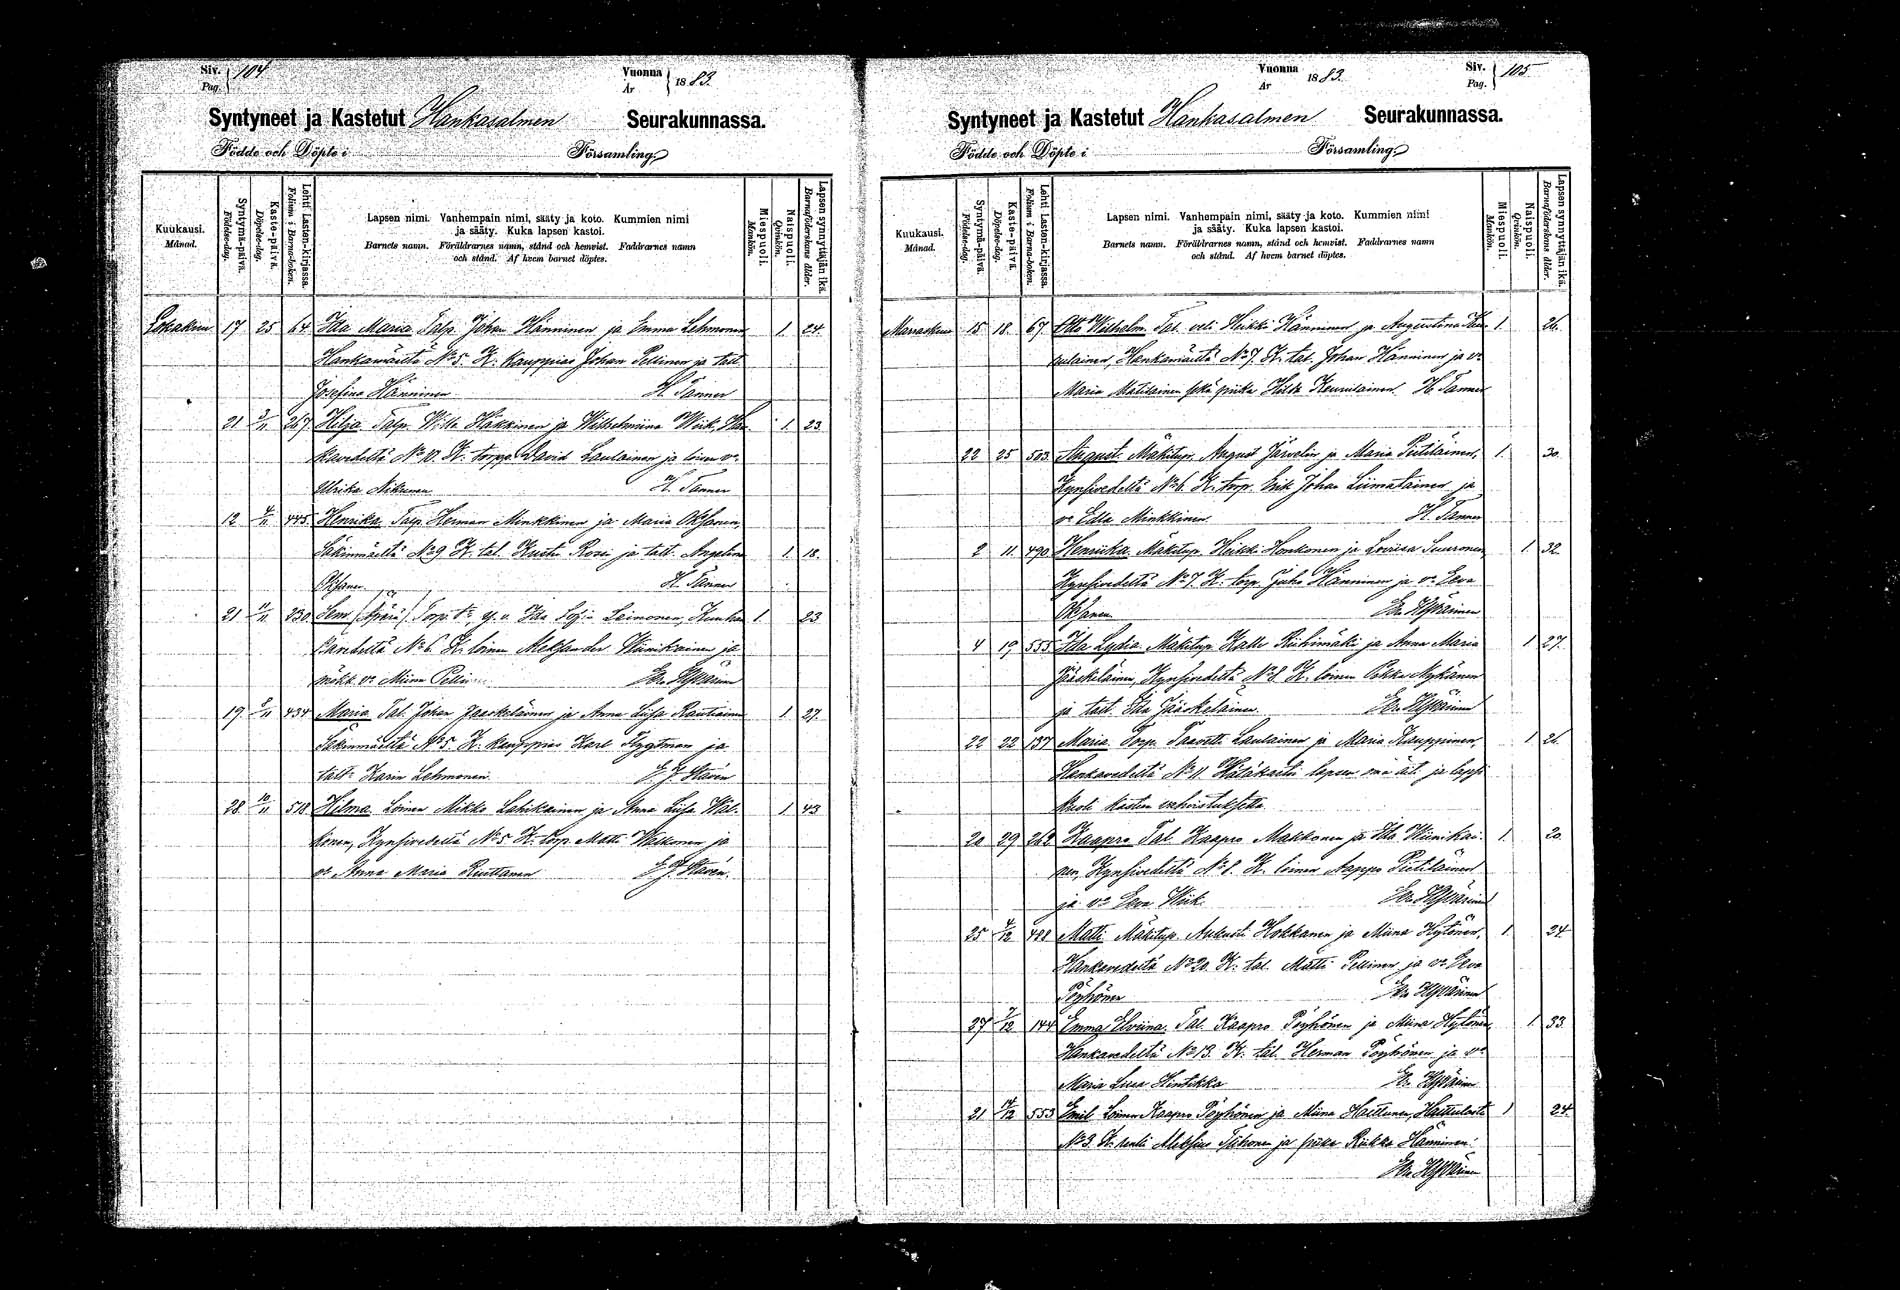 Siv. Pag. 104
Vuonna År 1883.
Syntyneet ja Kastetut Hankasalmen Seurakunnassa.
Födde och Döpte i Församling.
Kuukausi. Månad.
Syntymä-päivä. Födelse-dag.
Kaste-päivä. Döpelse-dag.
Lehti Lasten-kirjassa. Folium i Barna-boken.
Lapsen nimi. Vanhempain nimi, sääty ja koto. Kummien nimi
ja sääty. Kuka lapsen kastoi.
Barnets namn. Föräldrarnes namn, stånd och hemvist. Faddrarnes namn
och stånd. Af hvem barnet döptes.
Miespuoli. Mankön.
Naispuoli. Qvinkön.
Lapsen synnyttäjän ikä. Barnaföderskans ålder.
Lokakuu 17 25 64 Ida Maria Talp. Johan Hänninen ja Emma Lehmonen 1. 24.
Hankamäeltä No 5. K. kauppias Johan Pellinen ja talt.
Josefina Hänninen H. Tanner
21 3/11 267 Hilja. Talp. Wille Häkkinen ja Wilhelmiina Wiik, Han- 1. 23
kavedeltä No 10. K. torpp. David Laulainen ja loisen vo
Ulrika Nikunen H. Tanner
12 4/11 445. Henrika Talp. Herman Minkkinen ja Maria Oksanen,
Säkinmäeltä No 9 K. tal. Kusta Rossi ja talt. Angelina 1. 18.
Oksanen H. Tanner
21 11/11 230. (Äpärä). Torp. tr, y. v. Ida Sofia Leimonen, 1. 23
No 6. K. loinen Aleksander Wiinikainen ja
mökk. vo Miina Er. Hyvärinen
19 5/11 434 Maria. Tal. Johan Jääskeläinen ja Anna Liisa Rautiainen 1. 27.
Säkinmäeltä No 5. K. kauppias Karl Flygtman ja
talt. Karin Lehmonen E. J. Stavén
28. 10/11 518 Hilma. Loinen Mikko Lahikainen ja Anna Liisa Wäl- 1. 43
konen, Kynsivedeltä No 5. K. torp. Matti Walkonen ja
vo Anna Maria Ruuttanen E. J. Stavén.
Siv. Pag. 105
Vuonna År 1883.
Syntyneet ja Kastetut Hankasalmen Seurakunnassa.
Födde och Döpte i Församling.
Kuukausi. Månad.
Syntymä-päivä. Födelse-dag.
Kaste-päivä. Döpelse-dag.
Lehti Lasten-kirjassa. Folium i Barna-boken.
Lapsen nimi. Vanhempain nimi, sääty ja koto. Kummien nimi
ja sääty. Kuka lapsen kastoi.
Barnets namn. Föräldrarnes namn, stånd och hemvist. Faddrarnes namn
och stånd. Af hvem barnet döptes.
Miespuoli. Mankön.
Naispuoli. Qvinkön.
Lapsen synnyttäjän ikä. Barnaföderskans ålder.
Marraskuu 15 18. 67. Otto Wilhelm. Tal. veli Heikki Hänninen ja Augustina Keu- 1. 26.
rulainen, Hankamäeltä No 7. K. tal. Johan Hänninen ja vo
Maria Matilainen sekä piika Hilda Keurulainen. H. Tanner
22 25 503. August. Mäkitup. August Järvelin ja Maria Pietiläinen, 1. 30.
Kynsivedeltä No 6. K. torp. Erik Johan Liimatainen ja
vo Edla Minkkinen. H. Tanner
2 11. 490 Henriika. Mäkitup. Heikki Honkonen ja Lovisa Suuronen, 1. 32.
Kynsivedeltä No 7. K. torp. Juho Hänninen ja vo Eeva
Oksanen Er. Hyvärinen
4 19, 555 Ida Lydia. Mäkitup. Kalle Riihimäki ja Anna Maria 1 27.
Jääskeläinen, Kynsivedeltä No 8. K. loinen Pekka Nykänen
ja talt. Ida Jääskeläinen. Er. Hyvärinen
22 22 137 Maria. Torp. Taavetti Laulainen ja Maria Kauppinen, 1 26.
Hankavedeltä No 11. Hätäkastu lapsen oma äiti ja
kasteen vahvistuksetta.
20 29 262. Kaapro. Tal. Kaapro Makkonen ja Ida Wiinikai- 1. 20.
nen, Kynsivedeltä No 8. K. loinen Aappo Pietiläinen
ja vo Eeva Wiik. Er. Hyvärinen
25 4/12 488 Matti. Mäkitup. Aukusti Hokkanen ja Miina Hytönen, 1 24.
Hankavedeltä No 20. K. tal. Matti Pellinen ja vo Eeva
Pöyhönen Er. Hyvärinen
27 7/12 144 Emma Elviina. Tal. Kaapro Pöyhönen ja Miina Hytönen, 1. 33.
Hankavedeltä No 13. K. tal. Herman Pöyhönen ja vo
Maria Liisa Hintikka Er. Hyvärinen
21 14/12 553 Emil. Loinen Kaapro Pöyhönen ja Miina Hattunen, 1 24.
No 3. K. renki Aleksius Tiihonen ja piika Riikka Hänninen.
Er. Hyvärinen